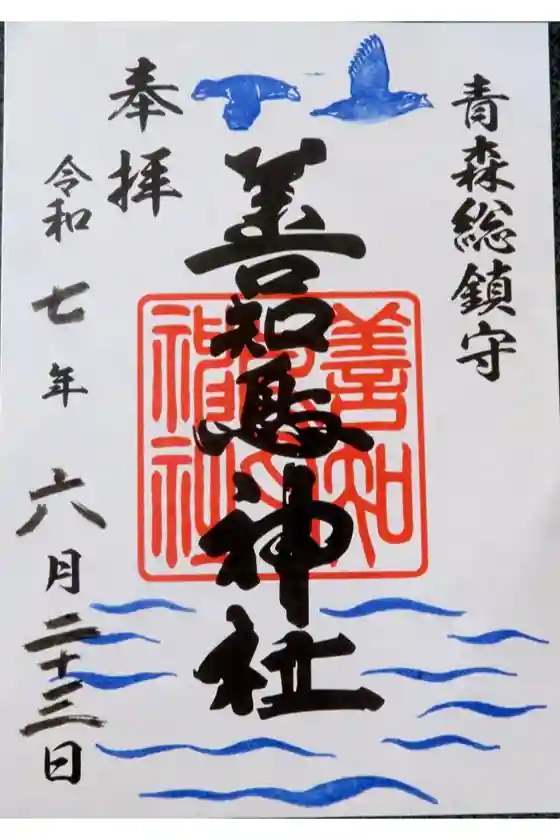 青森総鎮守
奉拝
善知鳥神社
善知鳥神社
令和七年六月二十三日